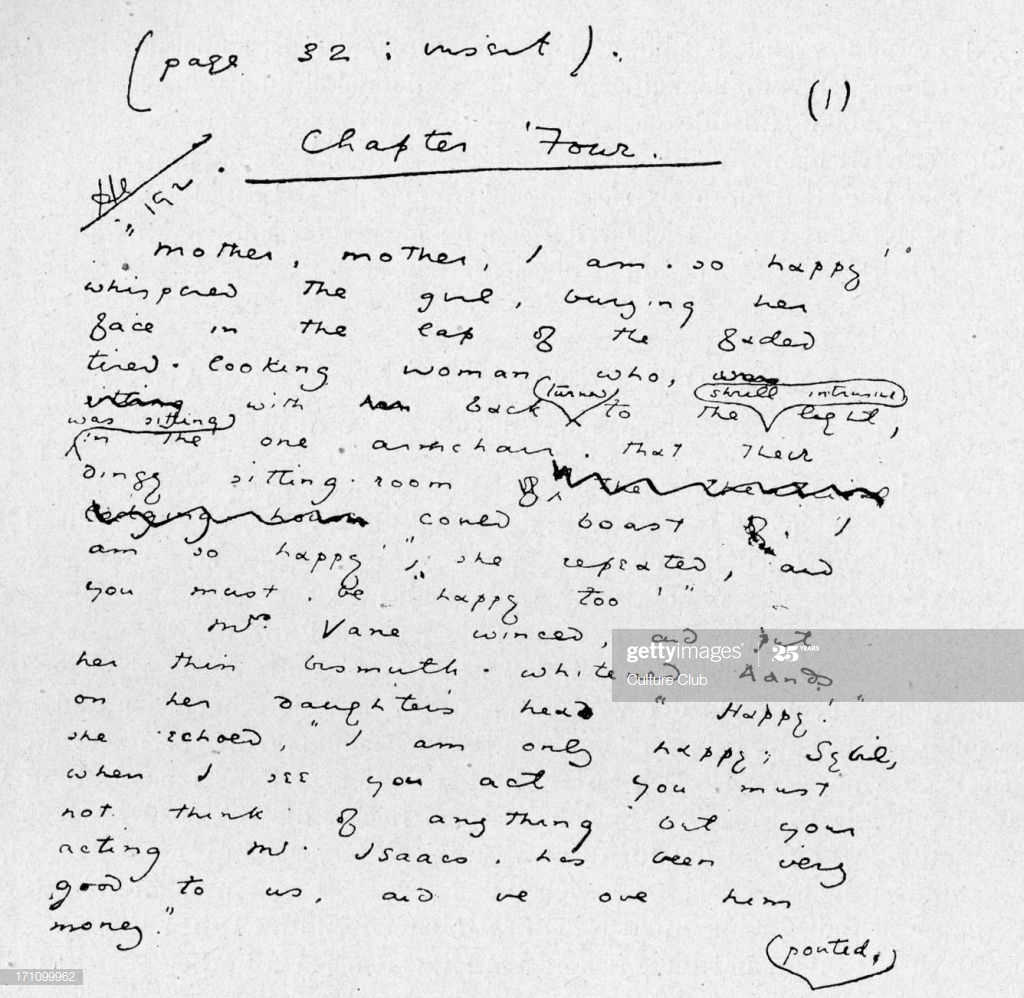 (page 32 : insert).
(1)
Chapter Four.
192.
"Mother, mother, I am so happy"
whispered the girl, burying her
face in the lap of the faded
tired-looking woman who, was
sitting with her back turned to the shrill intrusive light,
was sitting in the one armchair that their
dingy sitting-room of the
lodging house could boast of. I
am so happy", she repeated, and
you must be "happy too"
Mrs. Vane winced, and put
her thin bismuth-whitened hands
on her daughter's head "Happy!"
she echoed, "I am only happy, Sybil,
when I see you act you must
not think of anything but your
acting Mr. Isaacs has been very
good to us, and we owe him
money."
(pouted,)
gettyimages 25 YEARS
Culture Club
171099962